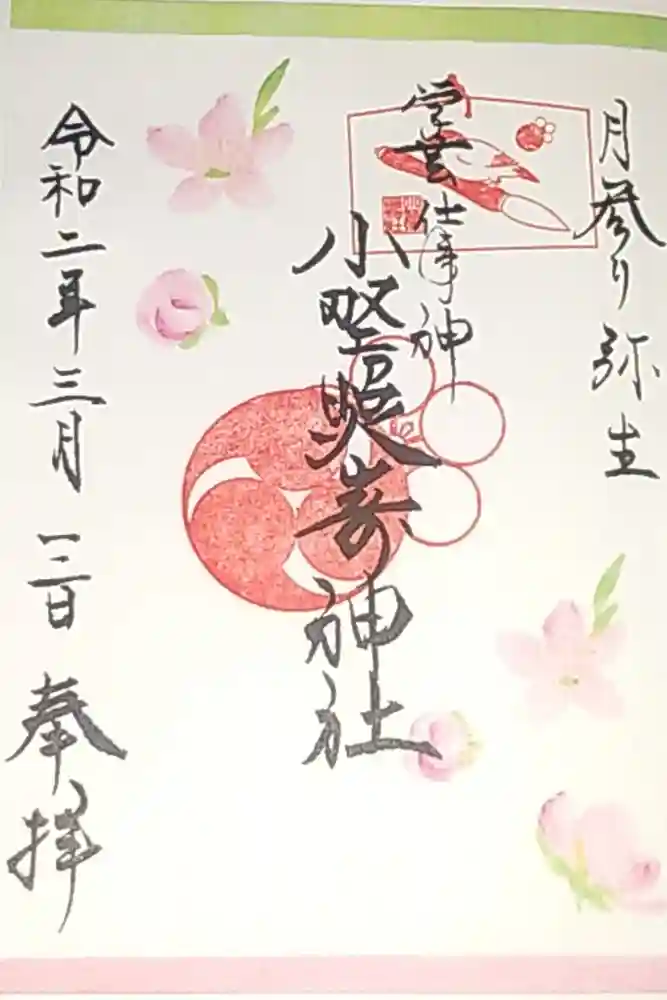 月参り 弥生
学芸 仕事神
小野照崎神社
令和二年三月 一三日 奉拝